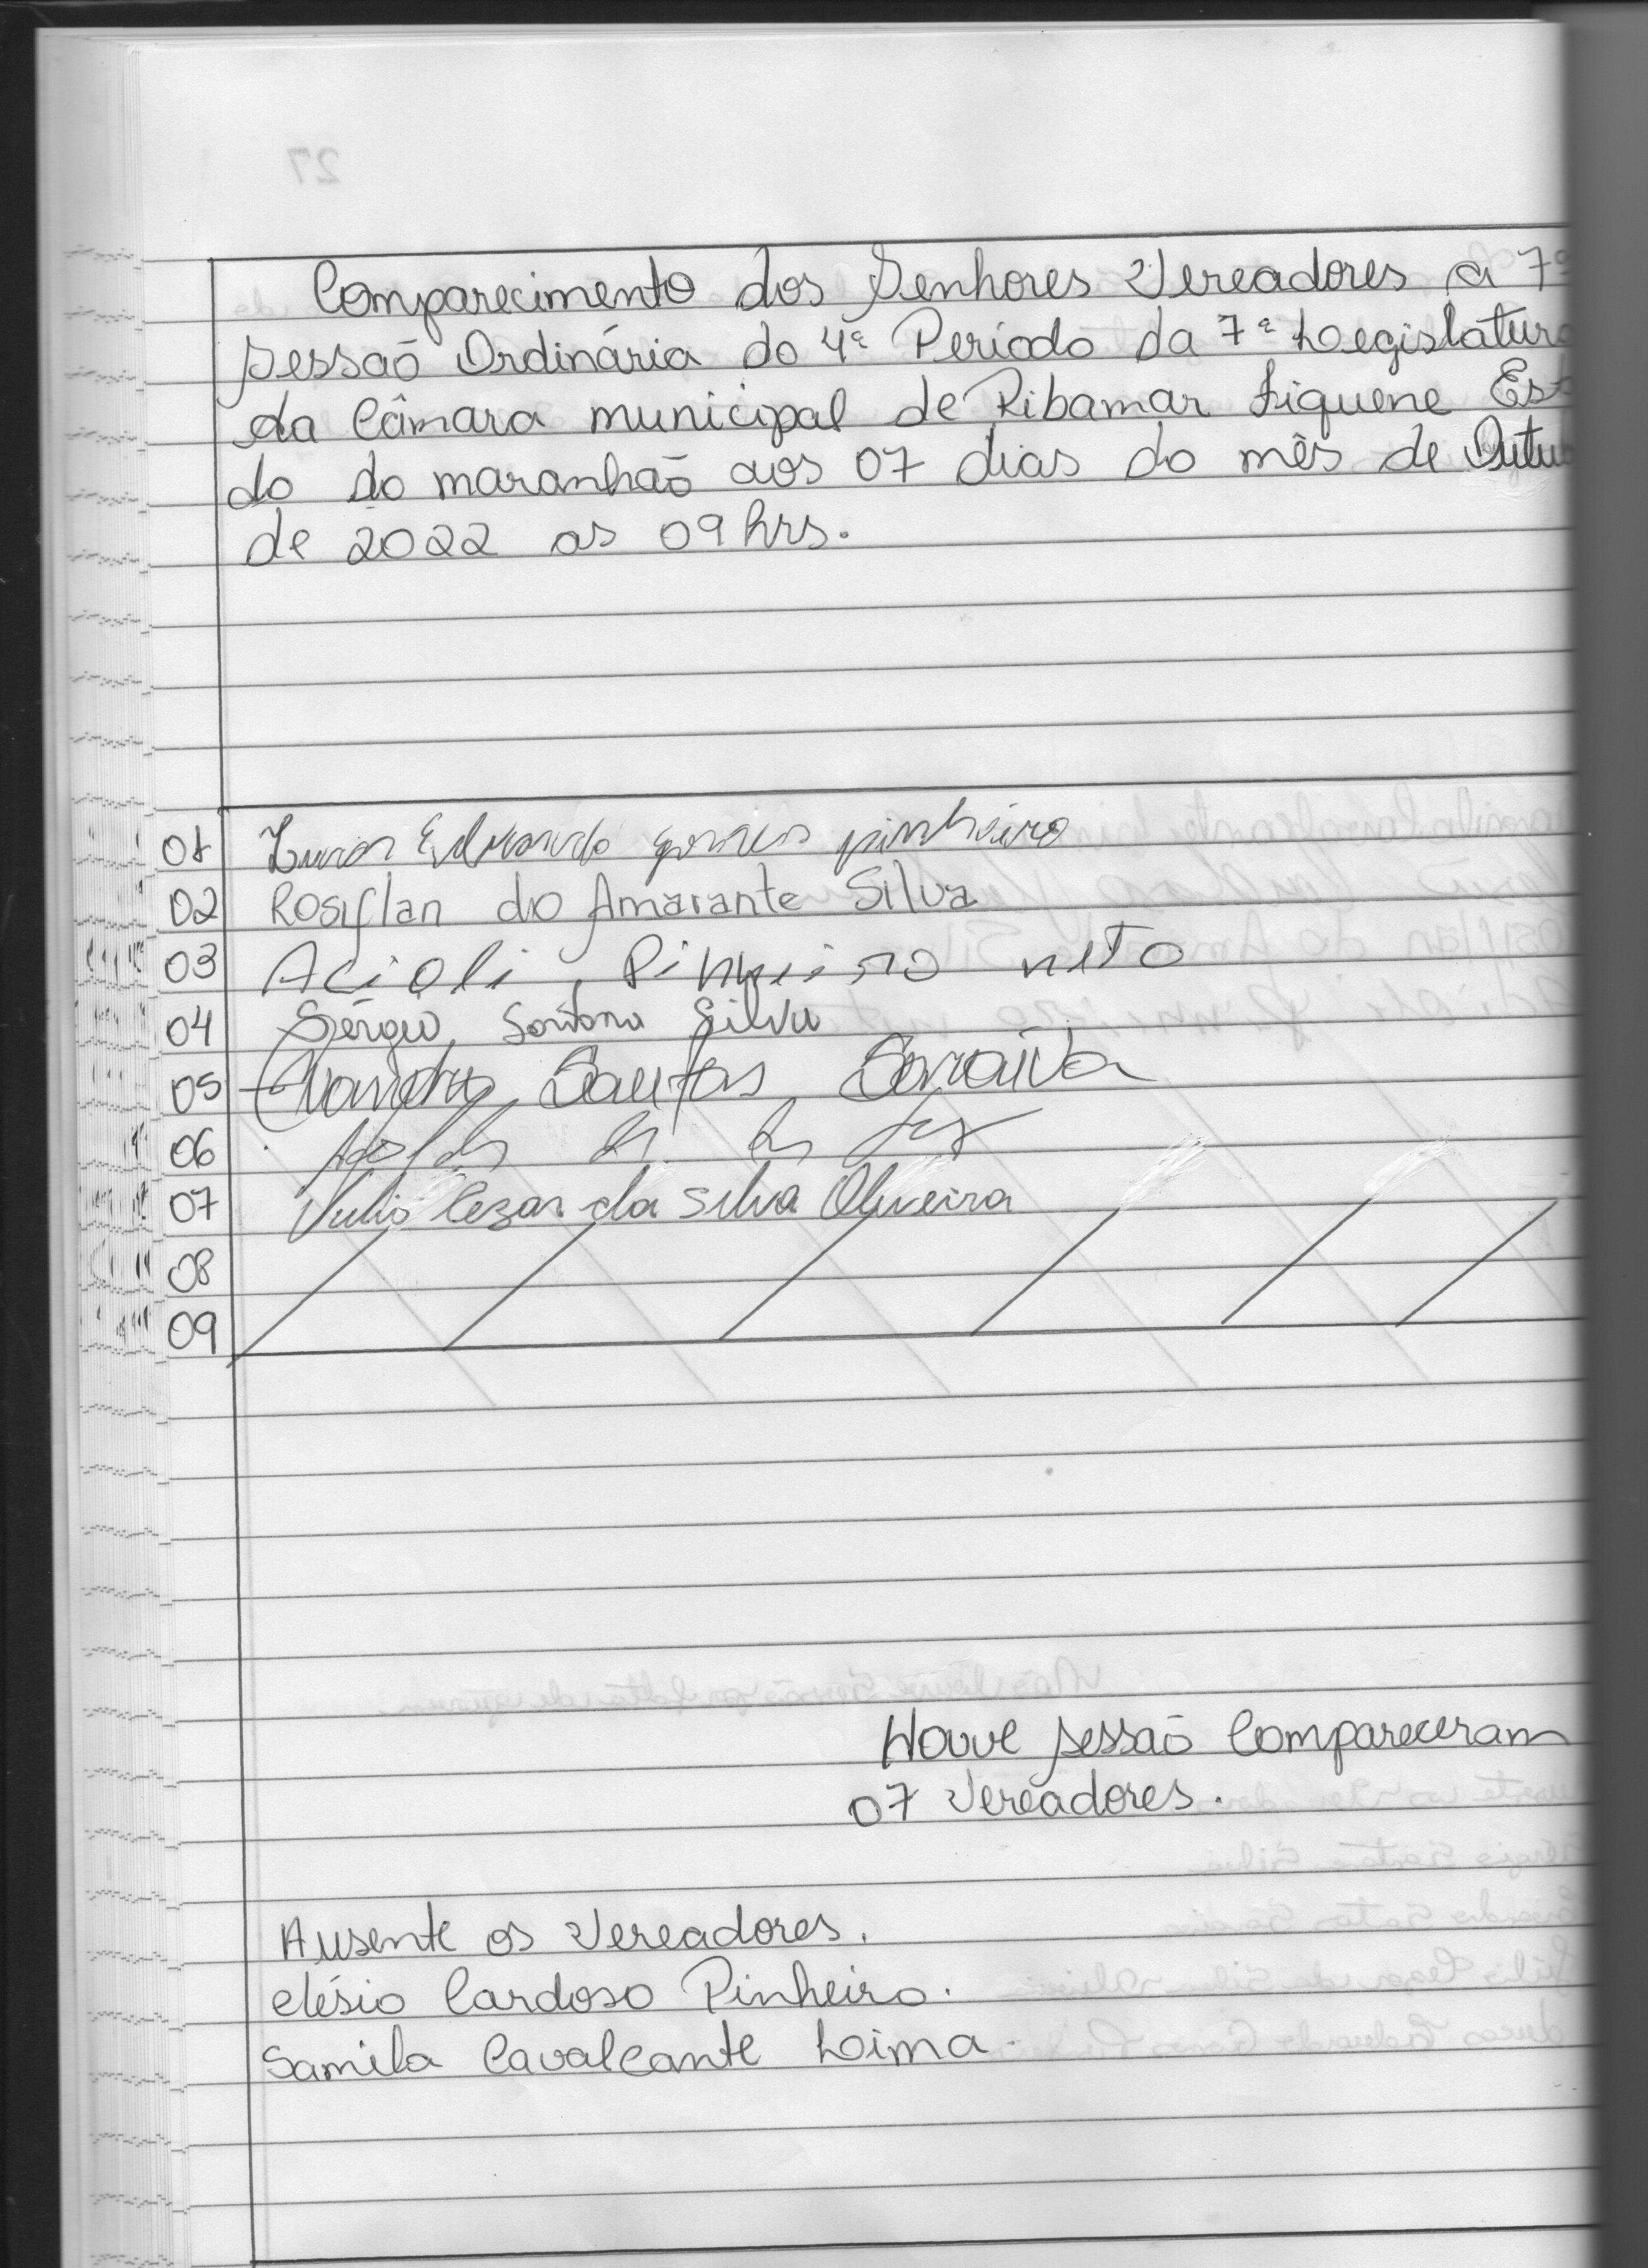 Comparecimento dos Senhores Vereadores a 7ª
Sessaõ Ordinária do 4ª Período da 7ª Legislatura
da Câmara municipal de Ribamar Fiquene Est
do do maranhaõ aos 07 dias do mês de Outu
de 2022 as 09 hrs.
01 Eduardo gomes pinheiro
02 Rosiflan do Amarante Silva
03 Acioli Pinheiro neto
04 Sérgio Santana Silva
05 Evandro Santos Saraiva
06
07 Julio Cezar da Silva Oliveira
08
09
Houve sessaõ Compareceram
07 Vereadores.
Ausente os Vereadores.
elésio Cardoso Pinheiro.
Samila Cavalcante Lima.